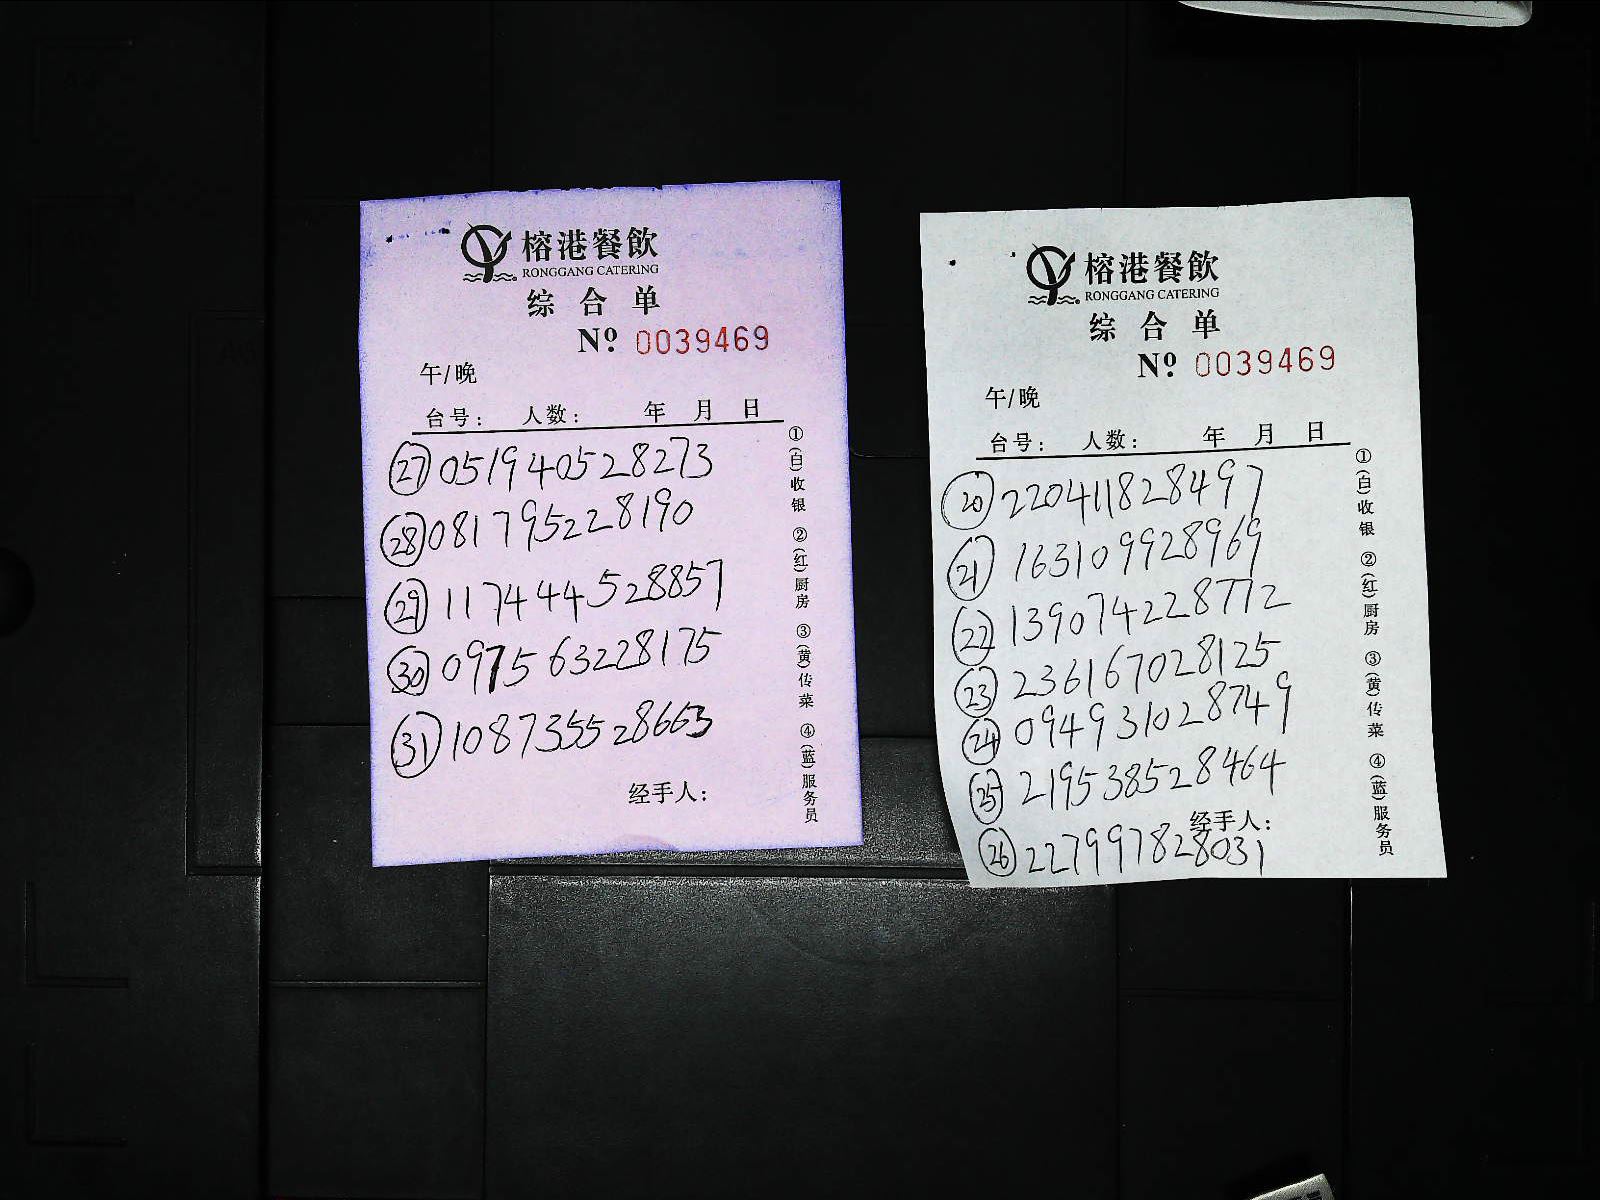 榕港餐飲
RONGGANG CATERING
综合单
Nº 0039469
午/晚
台号: 人数: 年 月 日
㉗ 051940528273
㉘ 081795228190
㉙ 117444528857
㉚ 097563228175
㉛ 108735528663
经手人:
①(白)收银 ②(红)厨房 ③(黄)传菜 ④(蓝)服务员
榕港餐飲
RONGGANG CATERING
综合单
Nº 0039469
午/晚
台号: 人数: 年 月 日
⑳ 220411828497
㉑ 163109928969
㉒ 139074228772
㉓ 236167028125
㉔ 094931028749
㉕ 219538528464
经手人:
㉖ 227997828031
①(白)收银 ②(红)厨房 ③(黄)传菜 ④(蓝)服务员